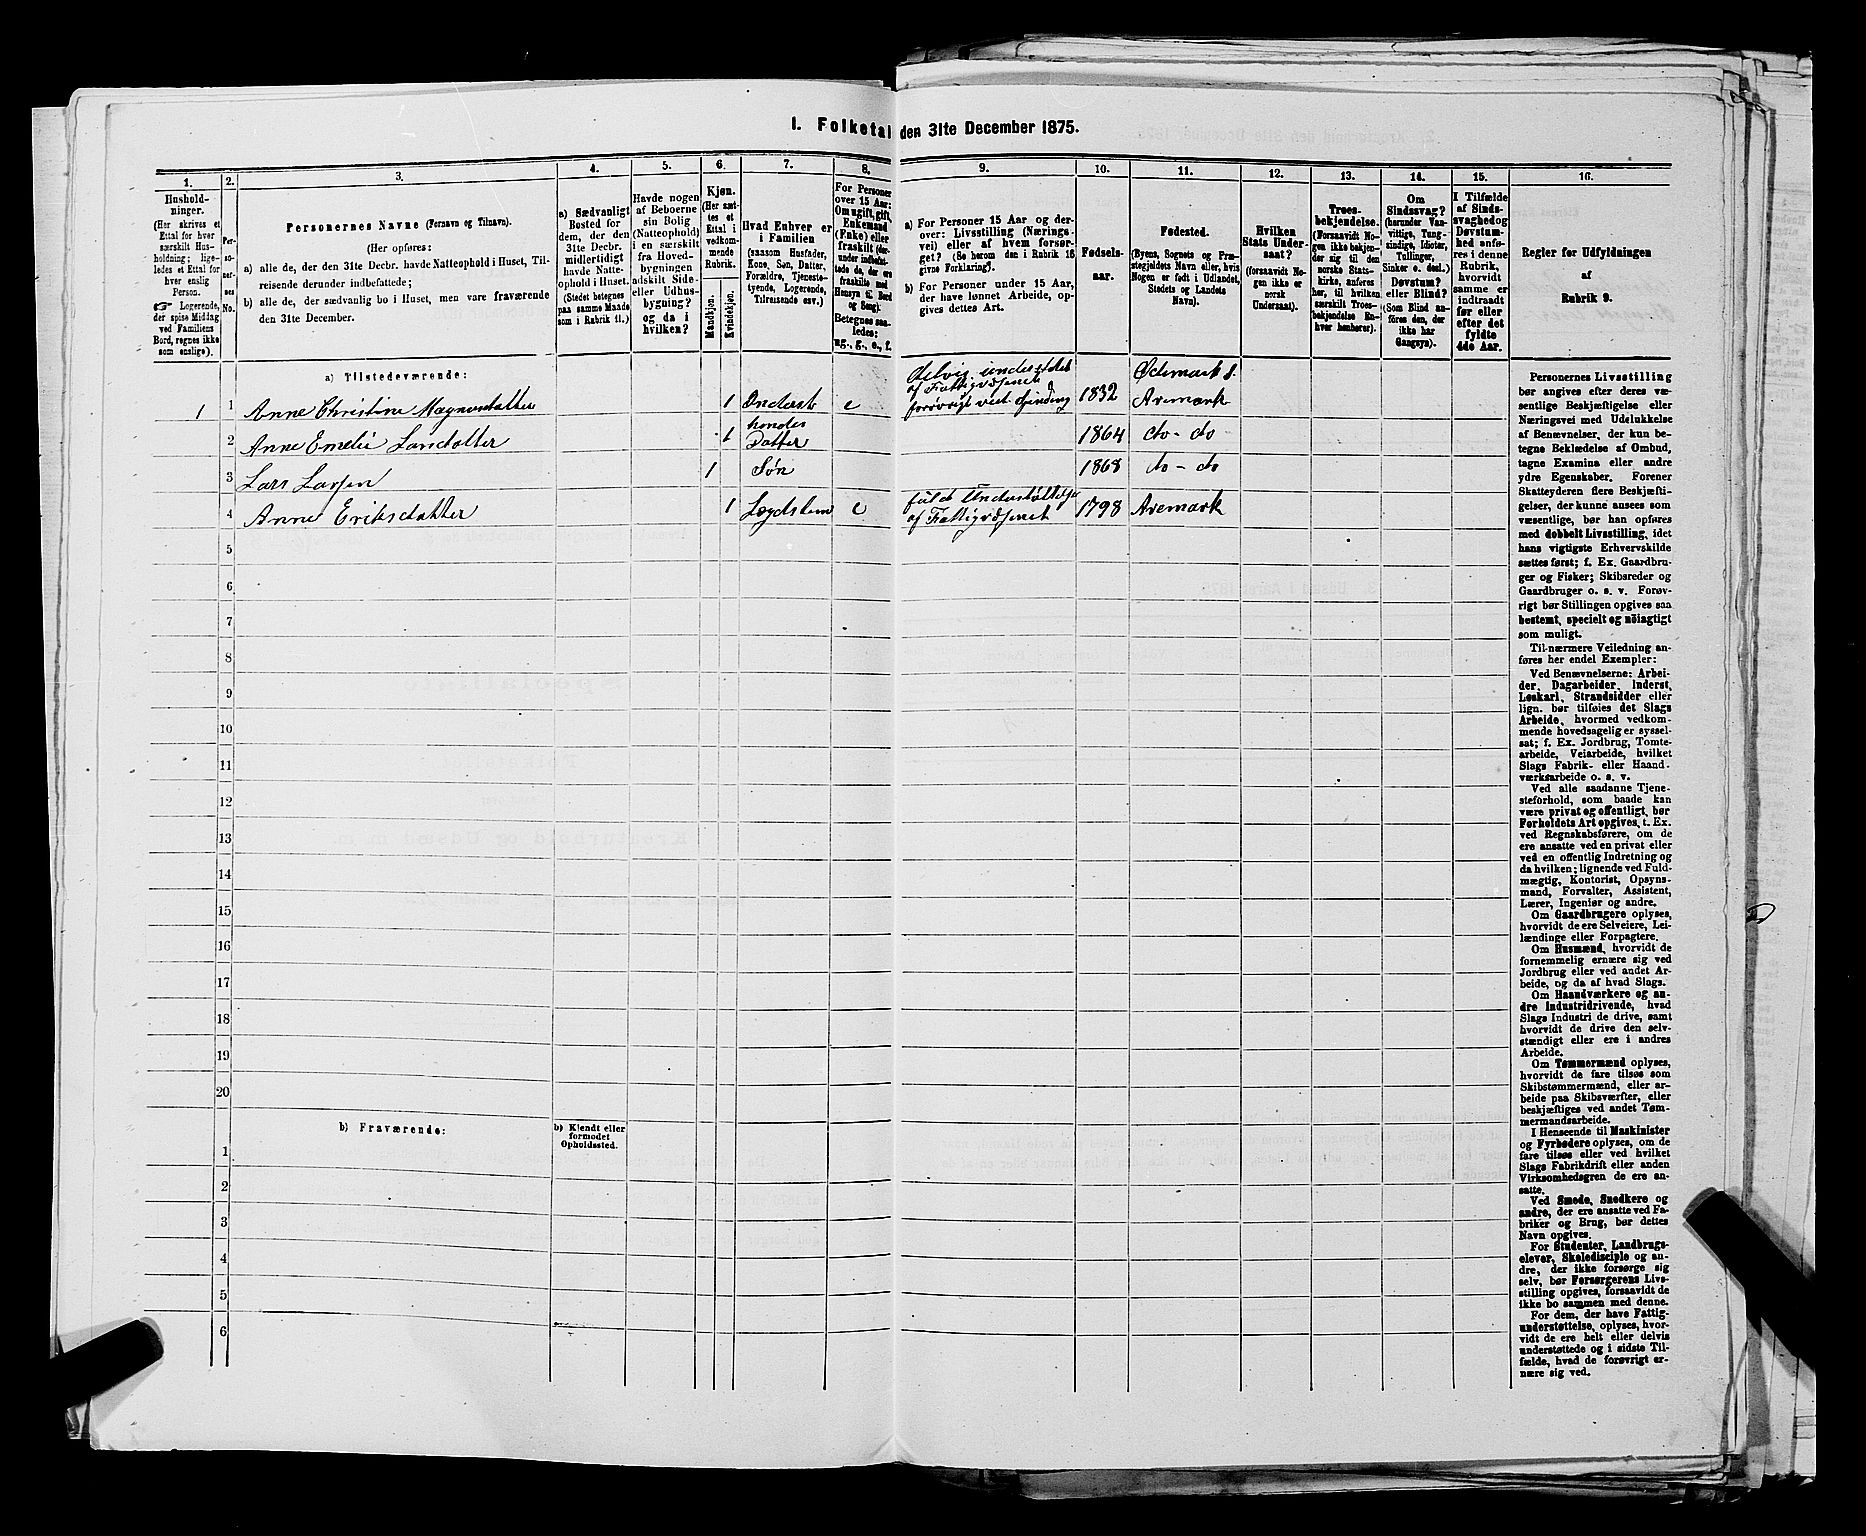 1. Folketal den 31te December 1875.
1.
2.
3.
4.
5.
6.
7.
8.
9.
10.
11.
12.
13.
14.
15.
16.
Hushold-
ninger.
(Her skrives et
Ettal for hver
særskilt Hus-
holdning; lige-
ledes et Ettal for
hver enslig
Person.
☞ Logerende,
der spise Middag
ved Familiens
Bord, regnes ikke
som enslige).
Per-
so-
ner-
nes
No.
Personernes Navne (Fornavn og Tilnavn).
(Her opføres:
a) alle de, der den 31te Decbr. havde Natteophold i Huset, Til-
reisende derunder indbefattede;
b) alle de, der sædvanlig bo i Huset, men vare fraværende
den 31te December.
a) Sædvanligt
Bosted for
dem, der den
31te Decbr.
midlertidigt
havde Natte-
ophold i Huset.
(Stedet betegnes
paa samme Maade
som i Rubrik 11.)
Havde nogen
af Beboerne
sin Bolig
(Natteophold)
i en særskilt
fra Hoved-
bygningen
adskilt Side-
eller Udhus-
bygning?
og da i
hvilken?
Kjøn.
(Her sæt-
tes et
Ettal i
vedkom-
mende
Rubrik.
Mandkjøn.
Kvindekjøn.
Hvad Enhver er
i Familien
(saasom Husfader,
Kone, Søn, Datter,
Forældre, Tjeneste-
tyende, Logerende,
Tilreisende osv.)
For Personer
over 15 Aar:
Om ugift, gift,
Enkemand
(Enke) eller
fraskilt (der-
under indbefat-
tede de, der ere
fraskilte med
Hensyn til Bord
og Seng).
Betegnes saa-
ledes:
ug., g., e., f.
a) For Personer 15 Aar og der-
over: Livsstilling (Nærings-
vei) eller af hvem forsør-
get? (Se herom den i Rubrik 16
givne Forklaring).
b) For Personer under 15 Aar,
der have lønnet Arbeide, op-
gives dettes Art.
Fødsels-
aar.
Fødested.
(Byens, Sognets og Præ-
stegjeldets Navn eller, hvis
Nogen er født i Udlandet,
Stedets og Landets
Navn).
Hvilken
Stats Under-
saat?
(forsaavidt No-
gen ikke er
norsk
Undersaat).
Troes-
bekjendelse.
(Forsaavidt No-
gen ikke bekjen-
der sig til den
norske Stats-
kirke, anføres
her, til hvilken
særskilt Troes-
bekjendelse En-
hver henhører).
Om
Sindssvag?
(herunder Van-
vittige, Tung-
sindige, Idioter,
Tullinger,
Sinker o. desl.)
Døvstum?
eller Blind?
(Som Blind an-
føres den, der
ikke har
Gangsyn).
I Tilfælde
af Sinds-
svaghed og
Døvstum-
hed anfø-
res i denne
Rubrik,
hvorvidt
samme er
indtraadt
før eller
efter det
fyldte
4de Aar.
Regler for Udfyldningen
af
Rubrik 9.
a) Tilstedeværende:
1 1 Anne Christine Magnusdatter 1 Underst e Delvis understøttet af Fattigvæsenet forøvrigt ved Spinding 1832 Ødemark s. Aremark
2 Anne Emelie Larsdatter 1 hendes Datter 1864 do - do
3 Lars Larsen 1 Søn 1868 do - do
4 Anne Eriksdatter 1 Lægdslem e fuld Understøttelse af Fattigvæsenet 1798 Aremark
5
6
7
8
9
10
11
12
13
14
15
16
17
18
19
20
b) Fraværende:
b) Kjendt eller
formodet
Opholdssted.
1
2
3
4
5
6
Personernes Livsstilling
bør angives efter deres væ-
sentlige Beskjæftigelse eller
Næringsvei med Udelukkelse
af Benævnelser, der kun be-
tegne Beklædelse af Ombud,
tagne Examina eller andre
ydre Egenskaber. Forener
Skatteyderen flere Beskjæfti-
gelser, der kunne ansees som
væsentlige, bør han opføres
med dobbelt Livsstilling, idet
hans vigtigste Erhvervskilde
sættes først; f. Ex. Gaardbru-
ger og Fisker; Skibsreder og
Gaardbruger o. s. v. Forøv-
rigt bør Stillingen opgives saa
bestemt, specielt og nöiagtigt
som muligt.
Til nærmere Veiledning an-
føres her endel Exempler:
Ved Benævnelserne: Arbei-
der, Dagarbeider, Inderst,
Løskarl, Strandsidder eller
lign. bør tilføies det Slags
Arbeide, hvormed vedkom-
mende hovedsagelig er syssel-
sat; f. Ex. Jordbrug, Tomte-
arbeide, Veiarbeide, hvilket
Slags Fabrik- eller Haand-
værksarbeide o. s. v.
Ved alle saadanne Tjene-
steforhold, som baade kan
være privat og offentligt, bør
Forholdets Art opgives, t. Ex.
ved Regnskabsførere, om de
ere ansatte ved en privat eller
ved en offentlig Indretning og
da hvilken; lignende ved Fuld-
mægtig, Kontorist, Opsyns-
mand, Forvalter, Assistent,
Lærer, Ingeniør og andre.
Om Gaardbrugere oplyses,
hvorvidt de ere Selveiere, Lei-
lændinge eller Forpagtere.
Om Husmænd, hvorvidt de
fornemmelig ernære sig ved
Jordbrug eller ved andet Ar-
beide, og da af hvad Slags.
Om Haandværkere og an-
dre industridrivende, hvad
Slags Industri de drive, samt
hvorvidt de drive den selv-
stændigt eller ere i andres
Arbeide.
Om Tømmermænd oplyses,
hvorvidt de fare tilsøs som
Skibstømmermænd, eller ar-
beide paa Skibsværfter, eller
beskjæftiges ved andet Tøm-
mermandsarbeide.
I Henseende til Maskinister
og Fyrbødere oplyses, om de
fare tilsøs eller ved hvilket
Slags Fabrikdrift eller anden
Virksomhedsgren de ere an-
satte.
Ved Smede, Snedkere og
andre, der ere ansatte ved Fa-
briker og Brug, bør dettes
Navn opgives.
For Studenter, Landbrugs-
elever, Skoledisciple og an-
dre, der ikke forsørge sig
selv, bør Forsørgerens Livs-
stilling opgives, forsaavidt de
ikke bo sammen med denne.
For dem, der have Fattig-
understøttelse, oplyses, hvor-
vidt de ere helt eller delvis
understøttede og i sidste Til-
fælde, hvad de forøvrigt er-
nære sig ved.